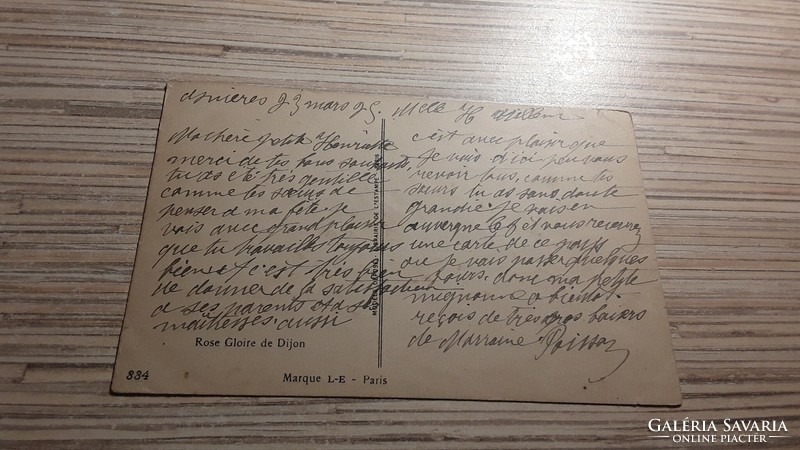 asnieres 23 mars 25. Melle H
Ma chère petite Henriette
merci de tes bons souhaits
tu as été très gentille
comme tes sœurs de
penser a ma fête. je
vois avec grand plaisir
que tu travailles toujours
bien et c'est très bien
de donner de la satisfaction
a ses parents et a ses
maîtresses. aussi
c'est avec plaisir que
je vais d'ici peu vous
revoir tous, comme tes
sœurs tu as sans doute
grandie. je vais en
auvergne le et vous recevrez
une carte de ce pays
ou je vais passer quelques
jours. donc ma petite
mignonne a bientot
reçois de très gros baisers
de Marraine Poisson
Rose Gloire de Dijon
334
Marque L-E - Paris
GALÉRIA SAVARIA
ONLINE PIACTÉR